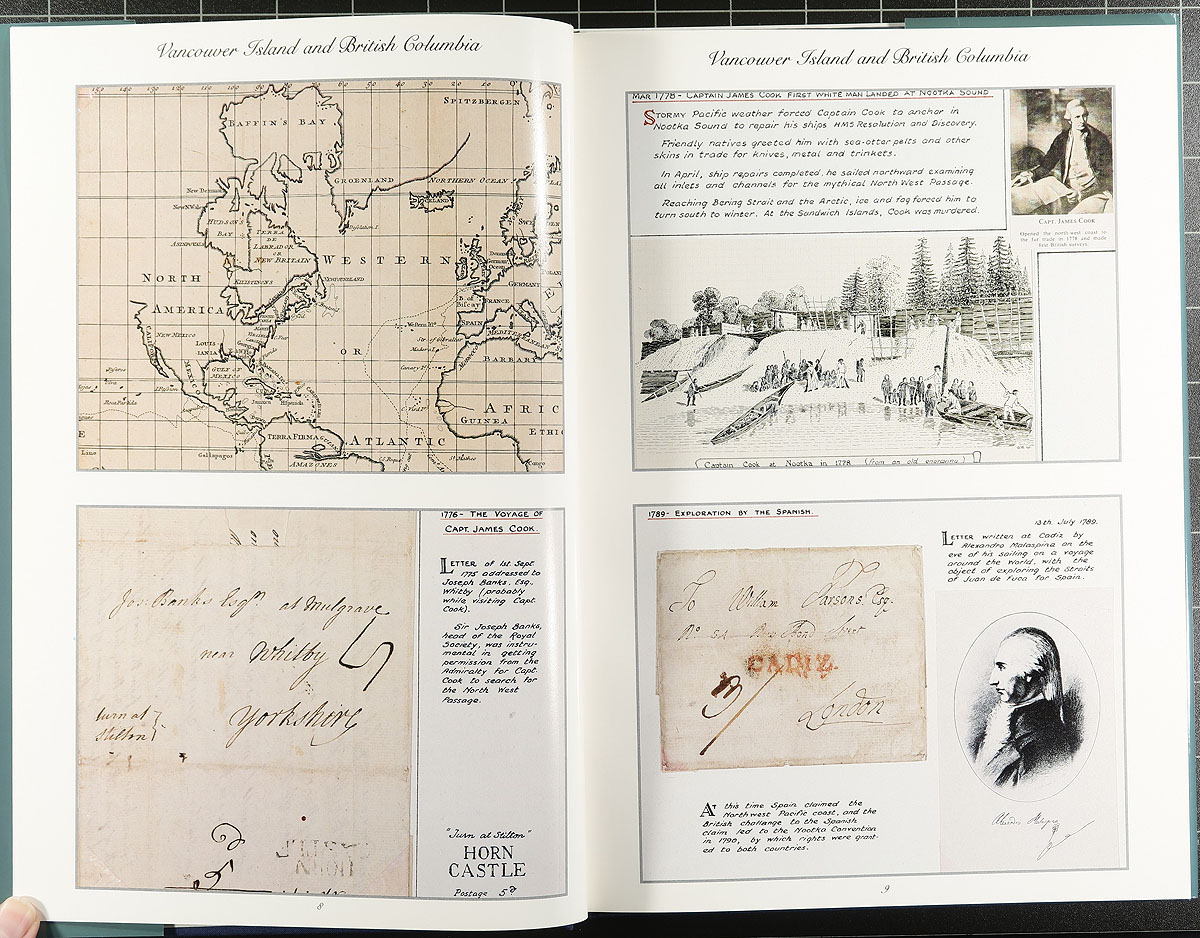 Vancouver Island and British Columbia
150
70
60
50
40
30
20
10
0
SPITZBERGEN
BAFFIN'S BAY
GROENLAND
NORTHERN OCEAN
New Denmark
HUDSON'S
BAY
TERRA
DE
LABRADOR
OR
NEW BRITAIN
NORTH
WESTERN
NEWFOUNDLAND
GERMANY
B. of
Biscay
FRANCE
AMERICA
SPAIN
NEW MEXICO
OR
Str. of Gibraltar
LOUIS
IANIA
BARBARY
CALIFORNIA
MEXICO
GULF OF
MEXICO
Canary Is.
AFRIC
GUINEA
TERRA FIRMA
ATLANTIC
ETHIO
Gallapagos
AMAZONES
St. Mathео
Congo
Jos: Banks Esqr. at Mulgrave
near Whitby
Yorkshire
turn at
Stilton
1776 - THE VOYAGE OF
CAPT. JAMES COOK.
LETTER of 1st. Sept.
1775 addressed to
Joseph Banks, Esq.,
Whitby (probably
while visiting Capt.
Cook).
Sir Joseph Banks,
head of the Royal
Society, was instru-
mental in getting
permission from the
Admiralty for Capt.
Cook to search for
the North West
Passage.
"Turn at Stilton"
HORN
CASTLE
Postage 5d
8
Vancouver Island and British Columbia
MAR 1778 - CAPTAIN JAMES COOK FIRST WHITE MAN LANDED AT NOOTKA SOUND
STORMY Pacific weather forced Captain Cook to anchor in
Nootka Sound to repair his ships HMS Resolution and Discovery.
Friendly natives greeted him with sea-otter pelts and other
skins in trade for knives, metal and trinkets.
In April, ship repairs completed, he sailed northward examining
all inlets and channels for the mythical North West Passage.
Reaching Bering Strait and the Arctic, ice and fog forced him to
turn south to winter. At the Sandwich Islands, Cook was murdered.
CAPT. JAMES COOK
Opened the north-west coast to
the fur trade in 1778 and made
first British surveys.
Captain Cook at Nootka in 1778 (from an old engraving)
1789 - EXPLORATION BY THE SPANISH.
13th. July 1789.
LETTER written at Cadiz by
Alexandro Malaspina on the
eve of his sailing on a voyage
around the World, with the
object of exploring the Straits
of Juan de Fuca for Spain.
To William Parsons Esq.
No. 54 New Bond Street
CADIZ.
London
AT this time Spain claimed the
Northwest Pacific coast, and the
British challange to the Spanish
claim led to the Nootka Convention
in 1790, by which rights were grant-
ed to both countries.
9